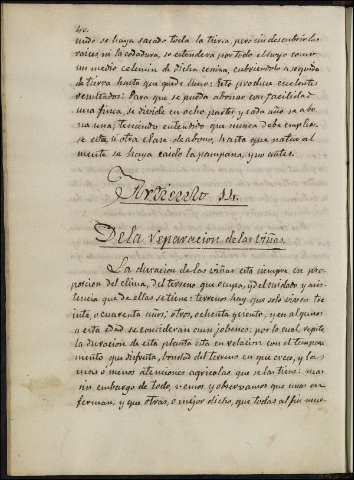 40.
uedo se haya sacado toda la tierra, pero sin descubrir las
raices, ni la rodadura, se estendera por todo el hoyo como
un medio celemin de dicha ceniza, cubriendolo a seguida
de tierra hasta que quede lleno: Esto produce escelentes
resultados: Para que se pueda abonar con facilidad
una finca, se divide en ocho partes y cada año se abo-
na una, teniendo entendido que nunca debe emplear-
se esta ú otra clase de abono, hasta que natural
mente se haya caido la pampana, y no antes.
Articulo 14.
De la reparacion de las viñas.
La duracion de las viñas está siempre en pro-
porcion del clima, del terreno que ocupa, y del cuidado y asis-
tencia que de ellas se tiene: terrenos hay que solo viven tre
inta, o cuarenta años, otros, ochenta y ciento, y en algunos
a esta edad se consideran aun jobenes: por lo cual repito
la duracion de esta planta está en relacion con el tempera-
mento que disfruta, bondad del terreno en que crece, y la
mas o menos atenciones agricolas que se las tiene: mas
sin embargo de todo, vemos y observamos que unas en
ferman, y que otras, o mejor dicho, que todas al fin mue-